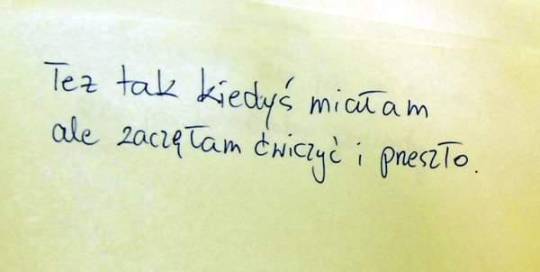 Też tak kiedyś miałam
ale zaczęłam ćwiczyć i przeszło.